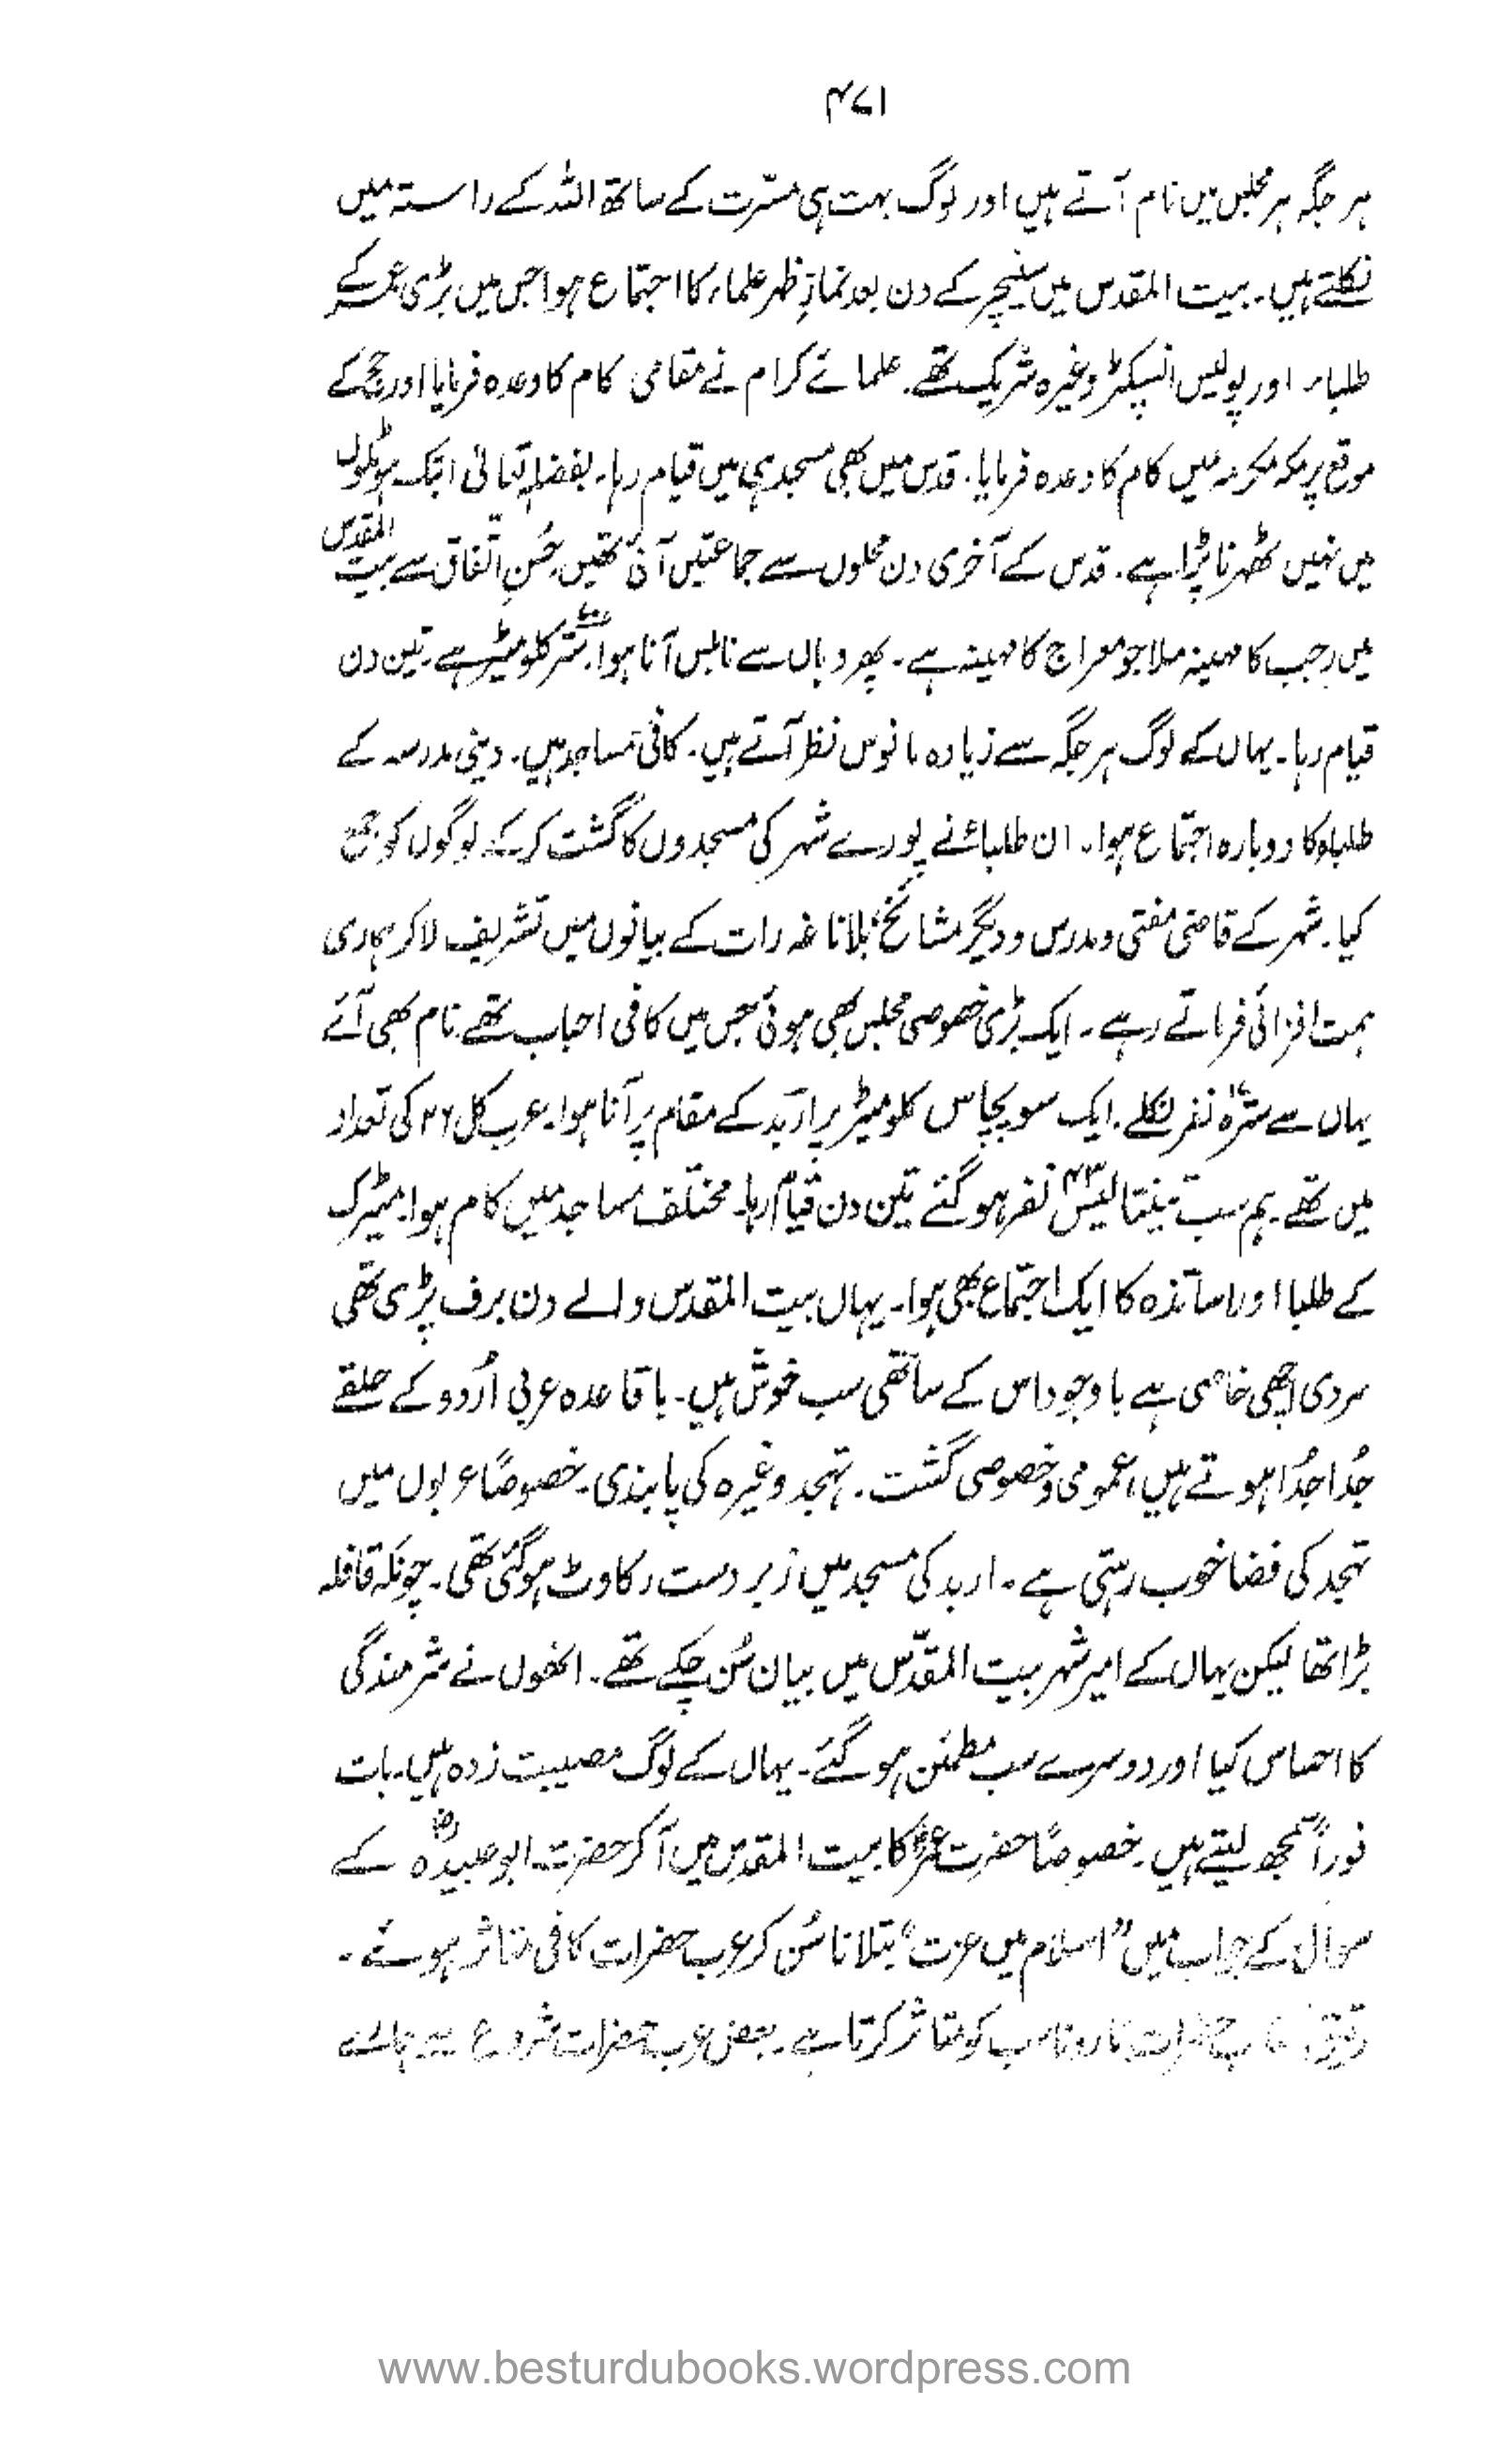 ۴۷۱
ہر جگہ ہر مجلس میں نام آتے ہیں اور لوگ بہت ہی مسّرت کے ساتھ اللہ کے راستہ میں
نکلتے ہیں۔ بیت المقدس میں سنیچر کے دن بعد نمازِ ظہر علماء کا اجتماع ہوا جس میں بڑی عمر کے
طلباء اور پولیس انسپکٹر وغیرہ شریک تھے۔ علمائے کرام نے مقامی کام کا وعدہ فرمایا اور حج کے
موقع پر مکہ مکرمہ میں کام کا وعدہ فرمایا۔ قدس میں بھی مسجد ہی میں قیام رہا۔ بفضلہٖ تعالیٰ ابتک ہوٹلوں
میں نہیں ٹھہرنا پڑا ہے۔ قدس کے آخری دن محلوں سے جماعتیں آئی تھیں۔ حُسنِ اتّفاق سے بیت المقدس
میں رجب کا مہینہ ملا جو معراج کا مہینہ ہے۔ پھر وہاں سے نابلس آنا ہوا۔ ستّر کلومیٹر ہے۔ تین دن
قیام رہا۔ یہاں کے لوگ ہر جگہ سے زیادہ مانوس نظر آتے ہیں۔ کافی مساجد ہیں۔ دینی مدرسہ کے
طلباء کا دوبارہ اجتماع ہوا۔ ان طلبائے نے پورے شہر کی مسجدوں کا گشت کر کے لوگوں کو جمع
کیا۔ شہر کے قاضی مفتی و مدرس و دیگر مشائخ بلاناغہ رات کے بیانوں میں تشریف لا کر ہماری
ہمت افزائی فرماتے رہے۔ ایک بڑی خصوصی مجلس بھی ہوئی جس میں کافی احباب تھے نام بھی آئے
یہاں سے سترہ ۱۷ نفر نکلے۔ ایک سو پچاس کلومیٹر پر اربد کے مقام پر آنا ہوا۔ عرب کل ۲۶ کی تعداد
میں تھے۔ ہم سب تینتالیس ۴۳ نفر ہو گئے تین دن قیام رہا۔ مختلف مساجد میں کام ہوا۔ میٹرک
کے طلبا اور اساتذہ کا ایک اجتماع بھی ہوا۔ یہاں بیت المقدس والے دن برف پڑی تھی
سردی اچھی خاصی ہے باوجود اس کے ساتھی سب خوش ہیں۔ باقاعدہ عربی اُردو کے حلقے
جُدا جُدا ہوتے ہیں، عمومی و خصوصی گشت۔ تہجد وغیرہ کی پابندی۔ خصوصًا عربوں میں
تہجد کی فضا خوب رہتی ہے۔ اربد کی مسجد میں زبردست رکاوٹ ہو گئی تھی۔ چونکہ قافلہ
بڑا تھا لیکن یہاں کے امیر شہر بیت المقدّس میں بیان سُن چکے تھے۔ انھوں نے شرمندگی
کا احساس کیا اور دوسرے سب مطمئن ہو گئے۔ یہاں کے لوگ مصیبت زدہ ہیں۔ بات
فوراً سمجھ لیتے ہیں۔ خصوصًا حضرت عمرؓ کا بیت المقدس میں آ کر حضرت ابو عبیدہؓ کے
سوال کے جواب میں "اسلام میں عزت" بتلانا سُن کر عرب حضرات کافی متاثر ہوئے۔
حضرات کا رونا سب کو متاثر کرتا ہے۔ بعض عرب حضرات شروع سے
www.besturdubooks.wordpress.com